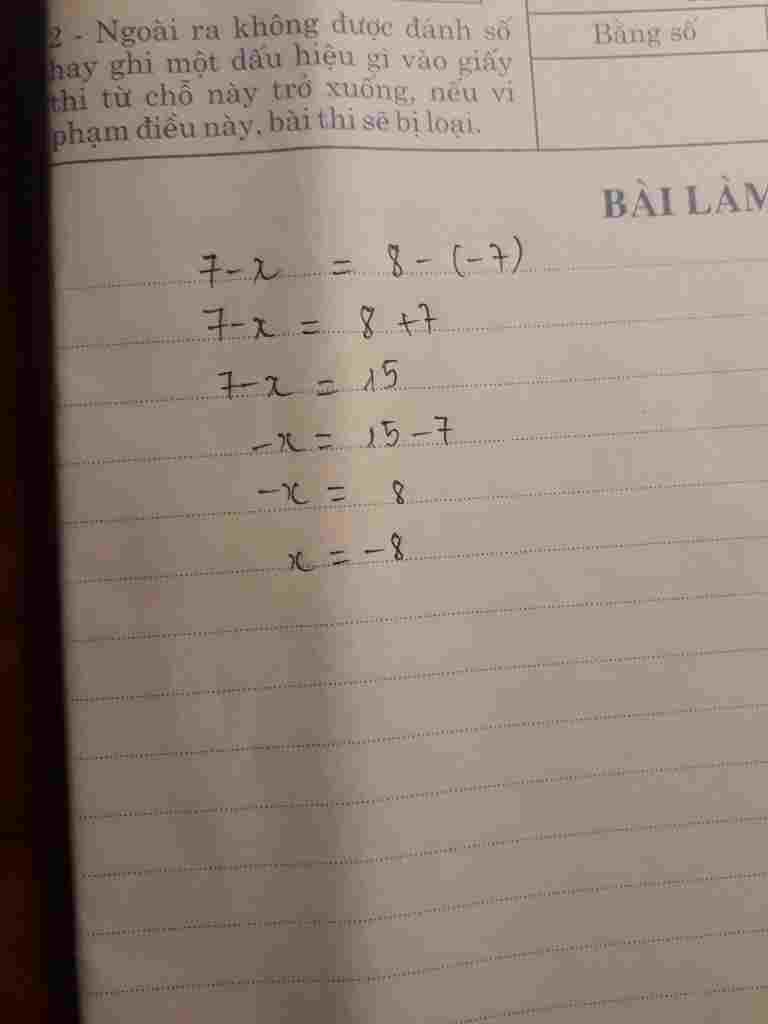 2 - Ngoài ra không được đánh số
hay ghi một dấu hiệu gì vào giấy
thi từ chỗ này trở xuống, nếu vi
phạm điều này, bài thi sẽ bị loại.
Bằng số
BÀI LÀM
7-x = 8-(-7)
7-x = 8+7
7-x = 15
-x = 15-7
-x = 8
x = -8